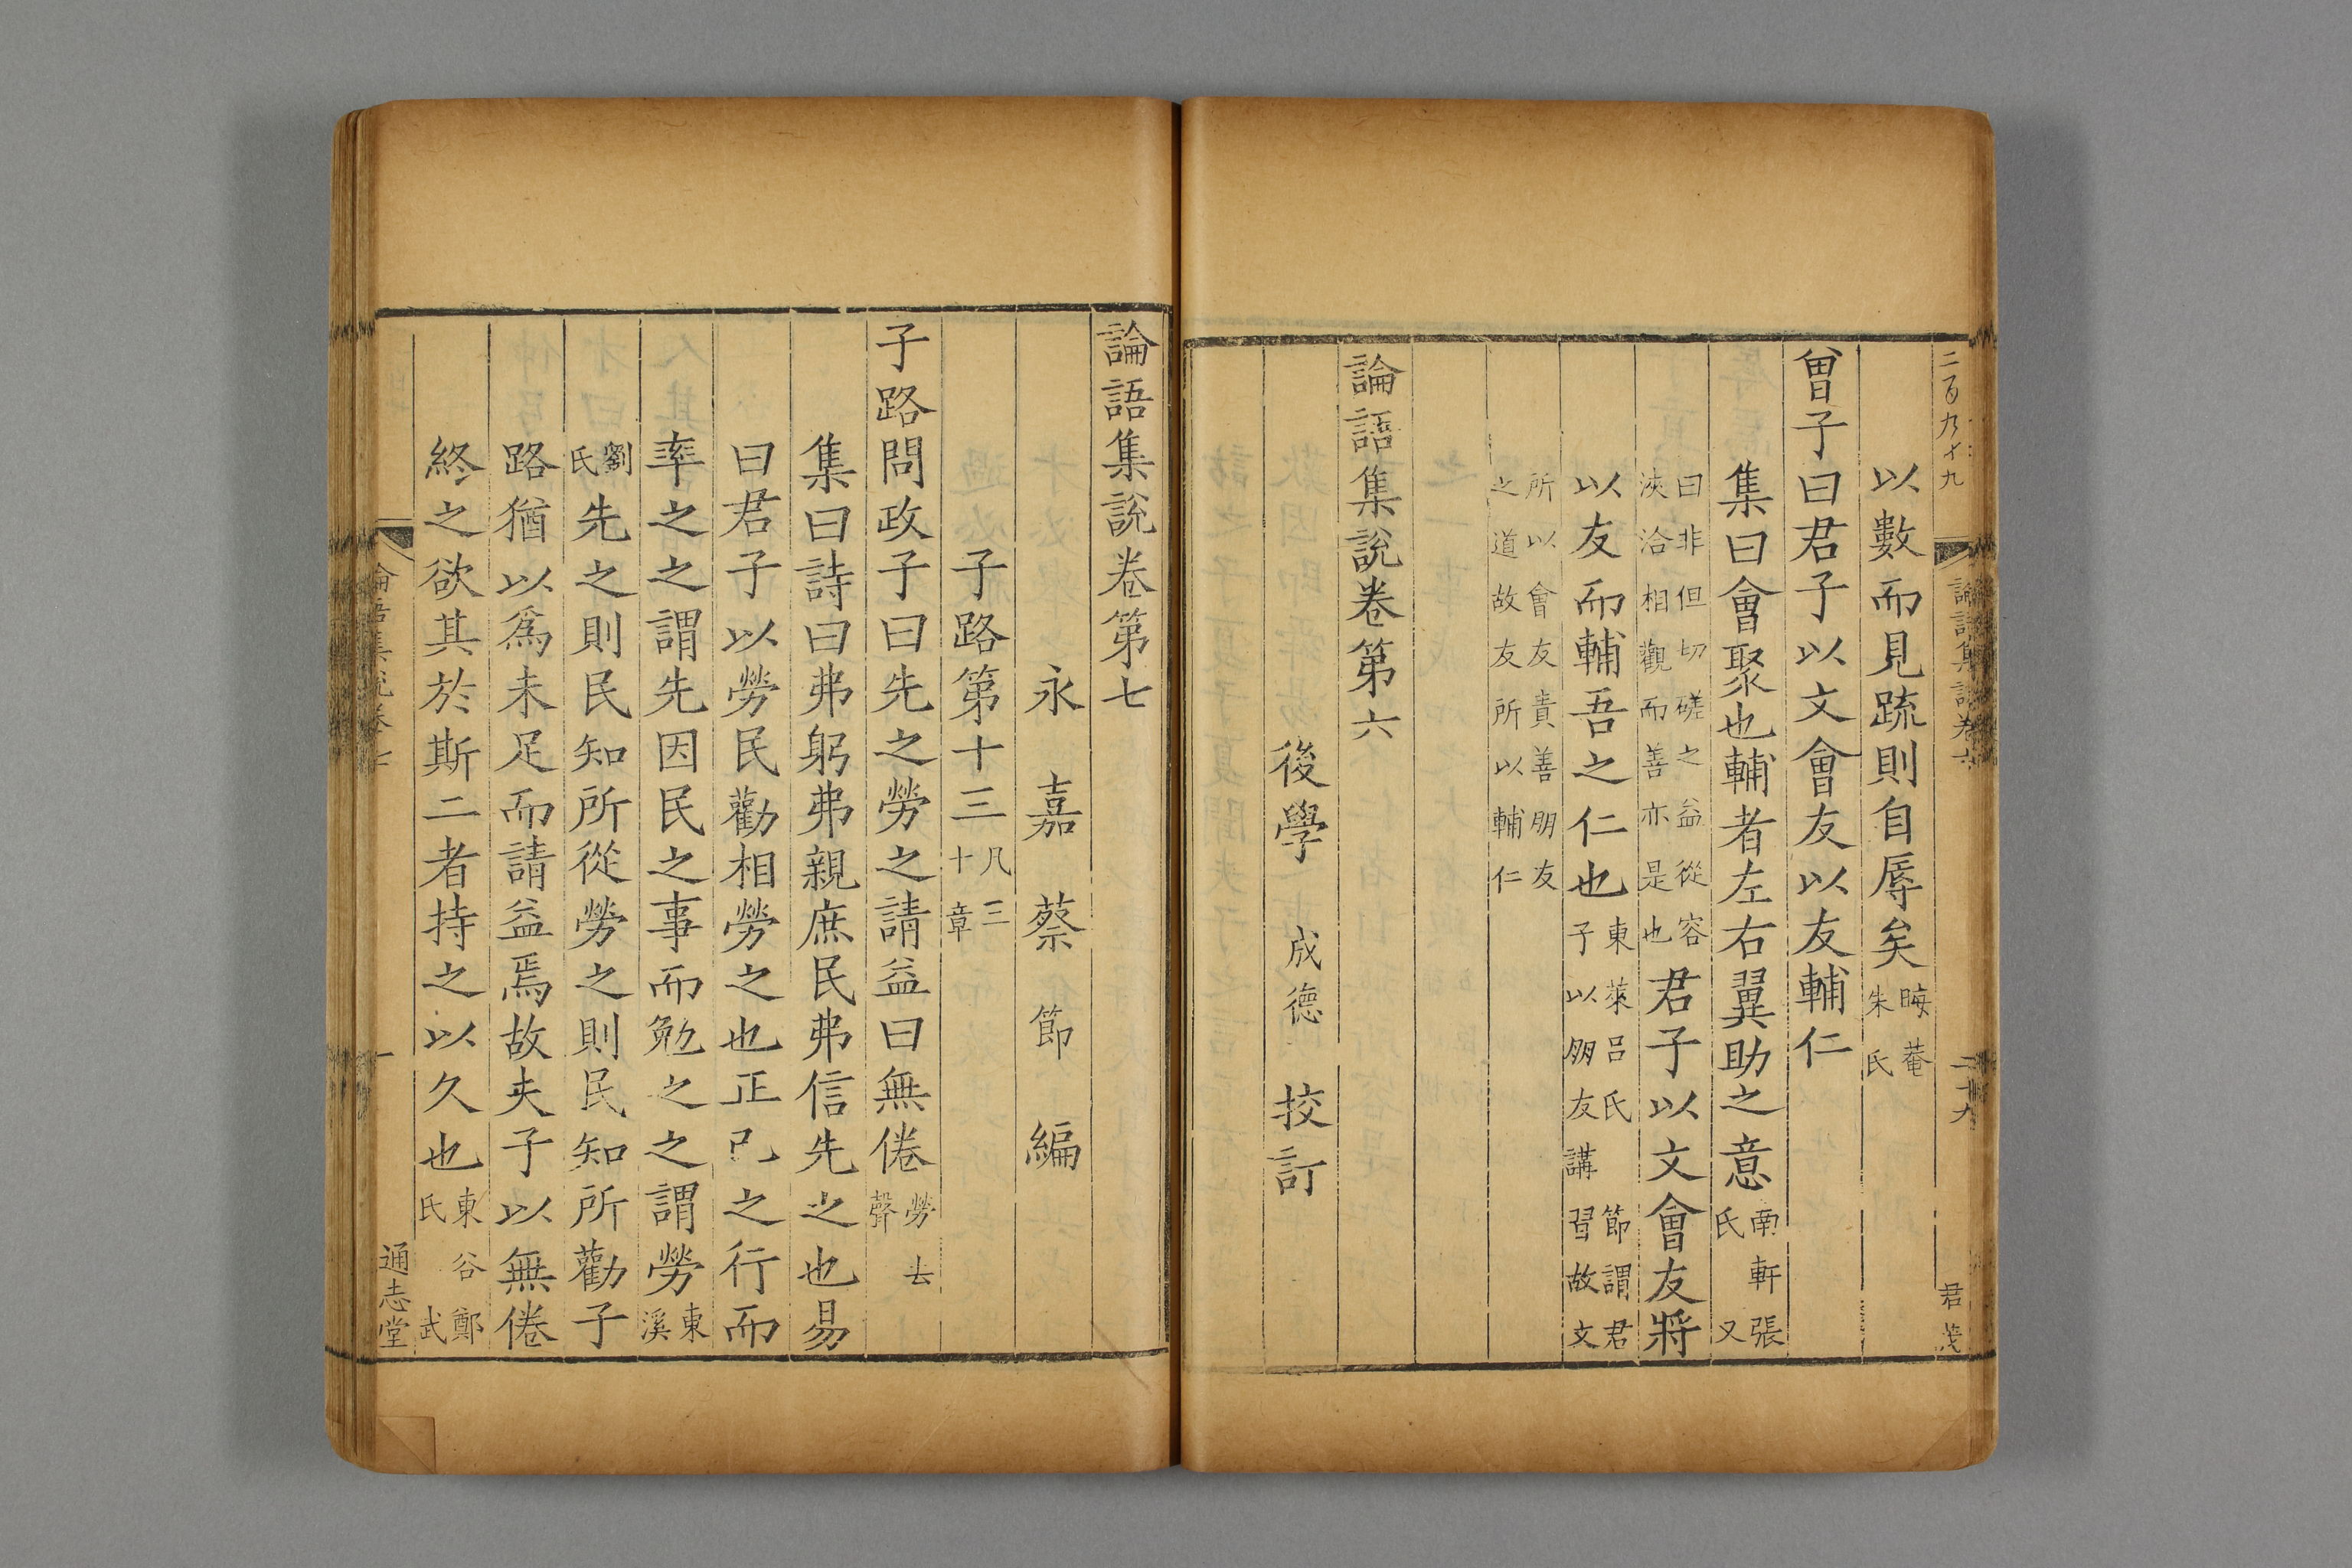 二百九十九
論語集說卷六
二十九
君茂
以數而見疏則自辱矣晦菴朱氏
曾子曰君子以文會友以友輔仁
集曰會聚也輔者左右翼助之意南軒張氏又
曰非但切磋之益從容浹洽相觀而善亦是也君子以文會友將
以友而輔吾之仁也東萊呂氏節謂君子以朋友講習故文
所以會友責善朋友之道故友所以輔仁
論語集說卷第六
後學成德挍訂
論語集說卷第七
永嘉蔡節編
子路第十三凡三十章
子路問政子曰先之勞之請益曰無倦勞去聲
集曰詩曰弗躬弗親庶民弗信先之也易
曰君子以勞民勸相勞之也正己之行而
率之之謂先因民之事而勉之之謂勞東溪
劉氏先之則民知所從勞之則民知所勸子
路猶以爲未足而請益焉故夫子以無倦
終之欲其於斯二者持之以久也東谷鄭氏武
論語集說卷七
一
通志堂